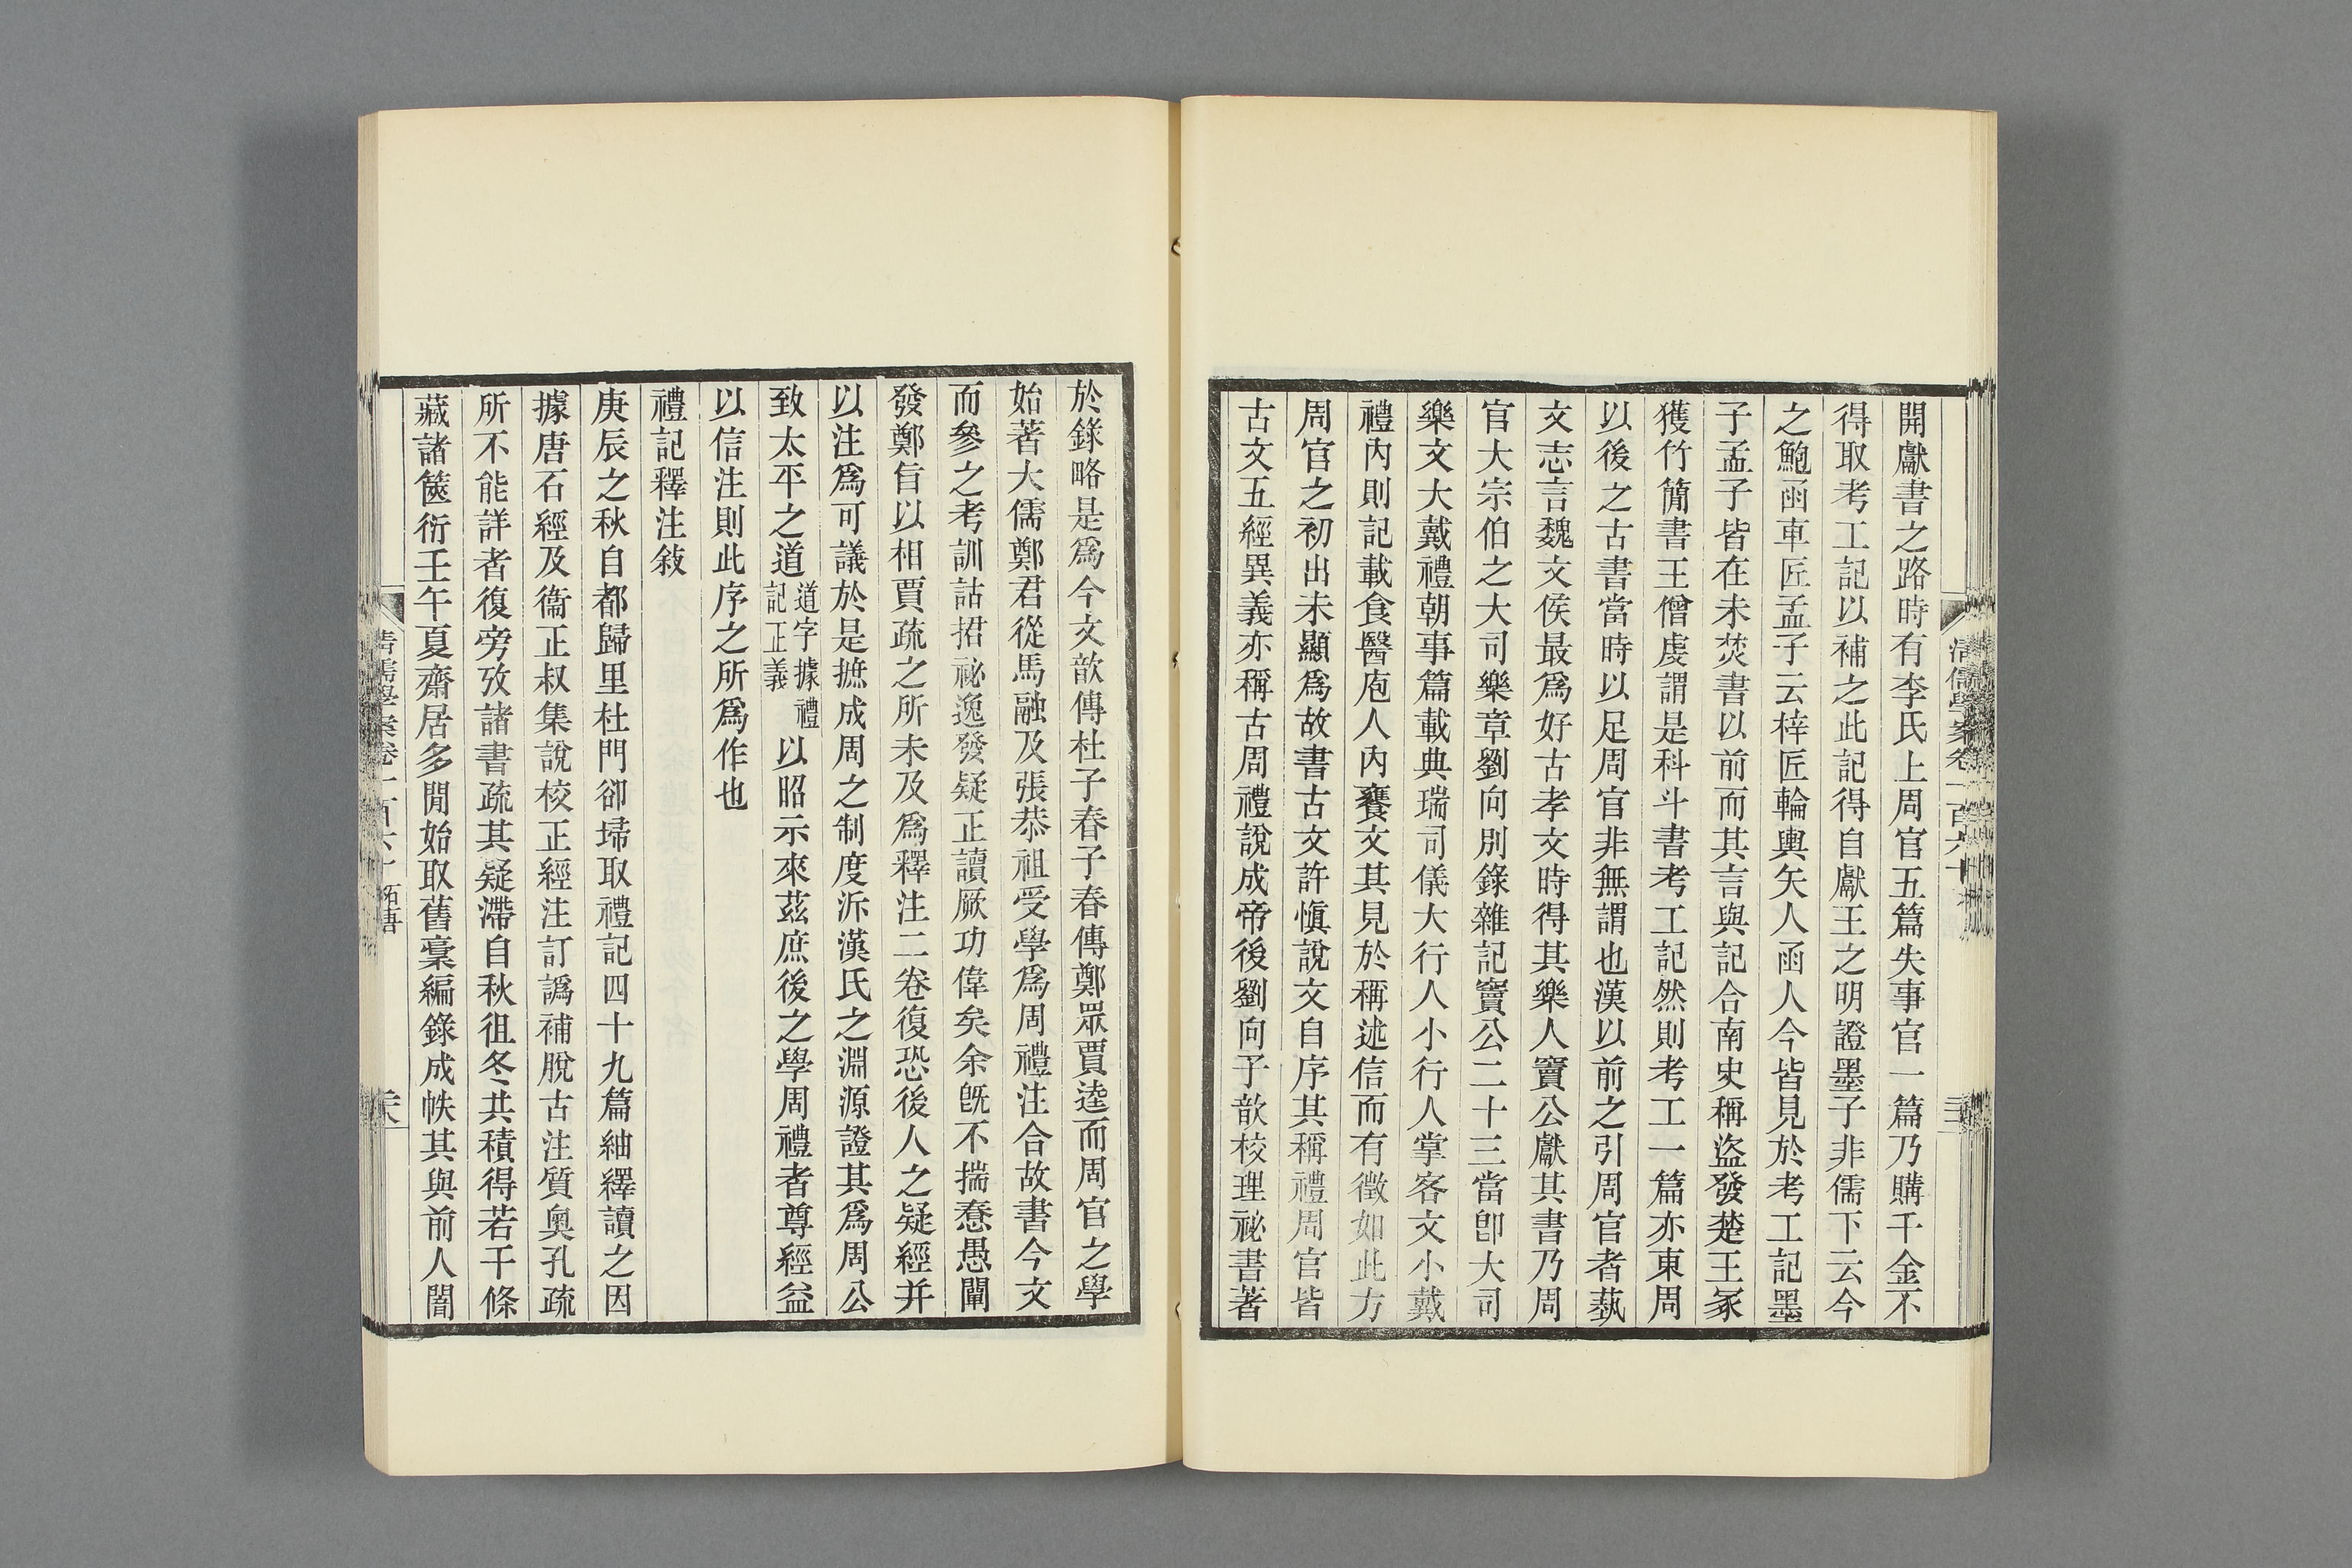 開獻書之路時有李氏上周官五篇失事官一篇乃購千金不
得取考工記以補之此記得自獻王之明證墨子非儒下云今
之鮑函車匠孟子云梓匠輪輿矢人函人今皆見於考工記墨
子孟子皆在未焚書以前而其言與記合南史稱盜發楚王冢
獲竹簡書王僧虔謂是科斗書考工記然則考工一篇亦東周
以後之古書當時以足周官非無謂也漢以前之引周官者蓺
文志言魏文侯最爲好古孝文時得其樂人竇公獻其書乃周
官大宗伯之大司樂章劉向別錄雜記竇公二十三當卽大司
樂文大戴禮朝事篇載典瑞司儀大行人小行人掌客文小戴
禮內則記載食醫庖人內饔文其見於稱述信而有徵如此方
周官之初出未顯爲故書古文許愼說文自序其稱禮周官皆
古文五經異義亦稱古周禮說成帝後劉向子歆校理祕書著
於錄略是爲今文歆傳杜子春子春傳鄭眾賈逵而周官之學
始著大儒鄭君從馬融及張恭祖受學爲周禮注合故書今文
而參之考訓詁捃祕逸發疑正讀厥功偉矣余旣不揣惷愚闡
發鄭旨以相賈疏之所未及爲釋注二卷復恐後人之疑經并
以注爲可議於是摭成周之制度泝漢氏之淵源證其爲周公
致太平之道道字據禮記正義以昭示來茲庶後之學周禮者尊經益
以信注則此序之所爲作也
禮記釋注敍
庚辰之秋自都歸里杜門卻埽取禮記四十九篇紬繹讀之因
據唐石經及衞正叔集說校正經注訂譌補脫古注質奧孔疏
所不能詳者復旁攷諸書疏其疑滯自秋徂冬共積得若干條
藏諸篋衍壬午夏齋居多閒始取舊稾編錄成帙其與前人闇